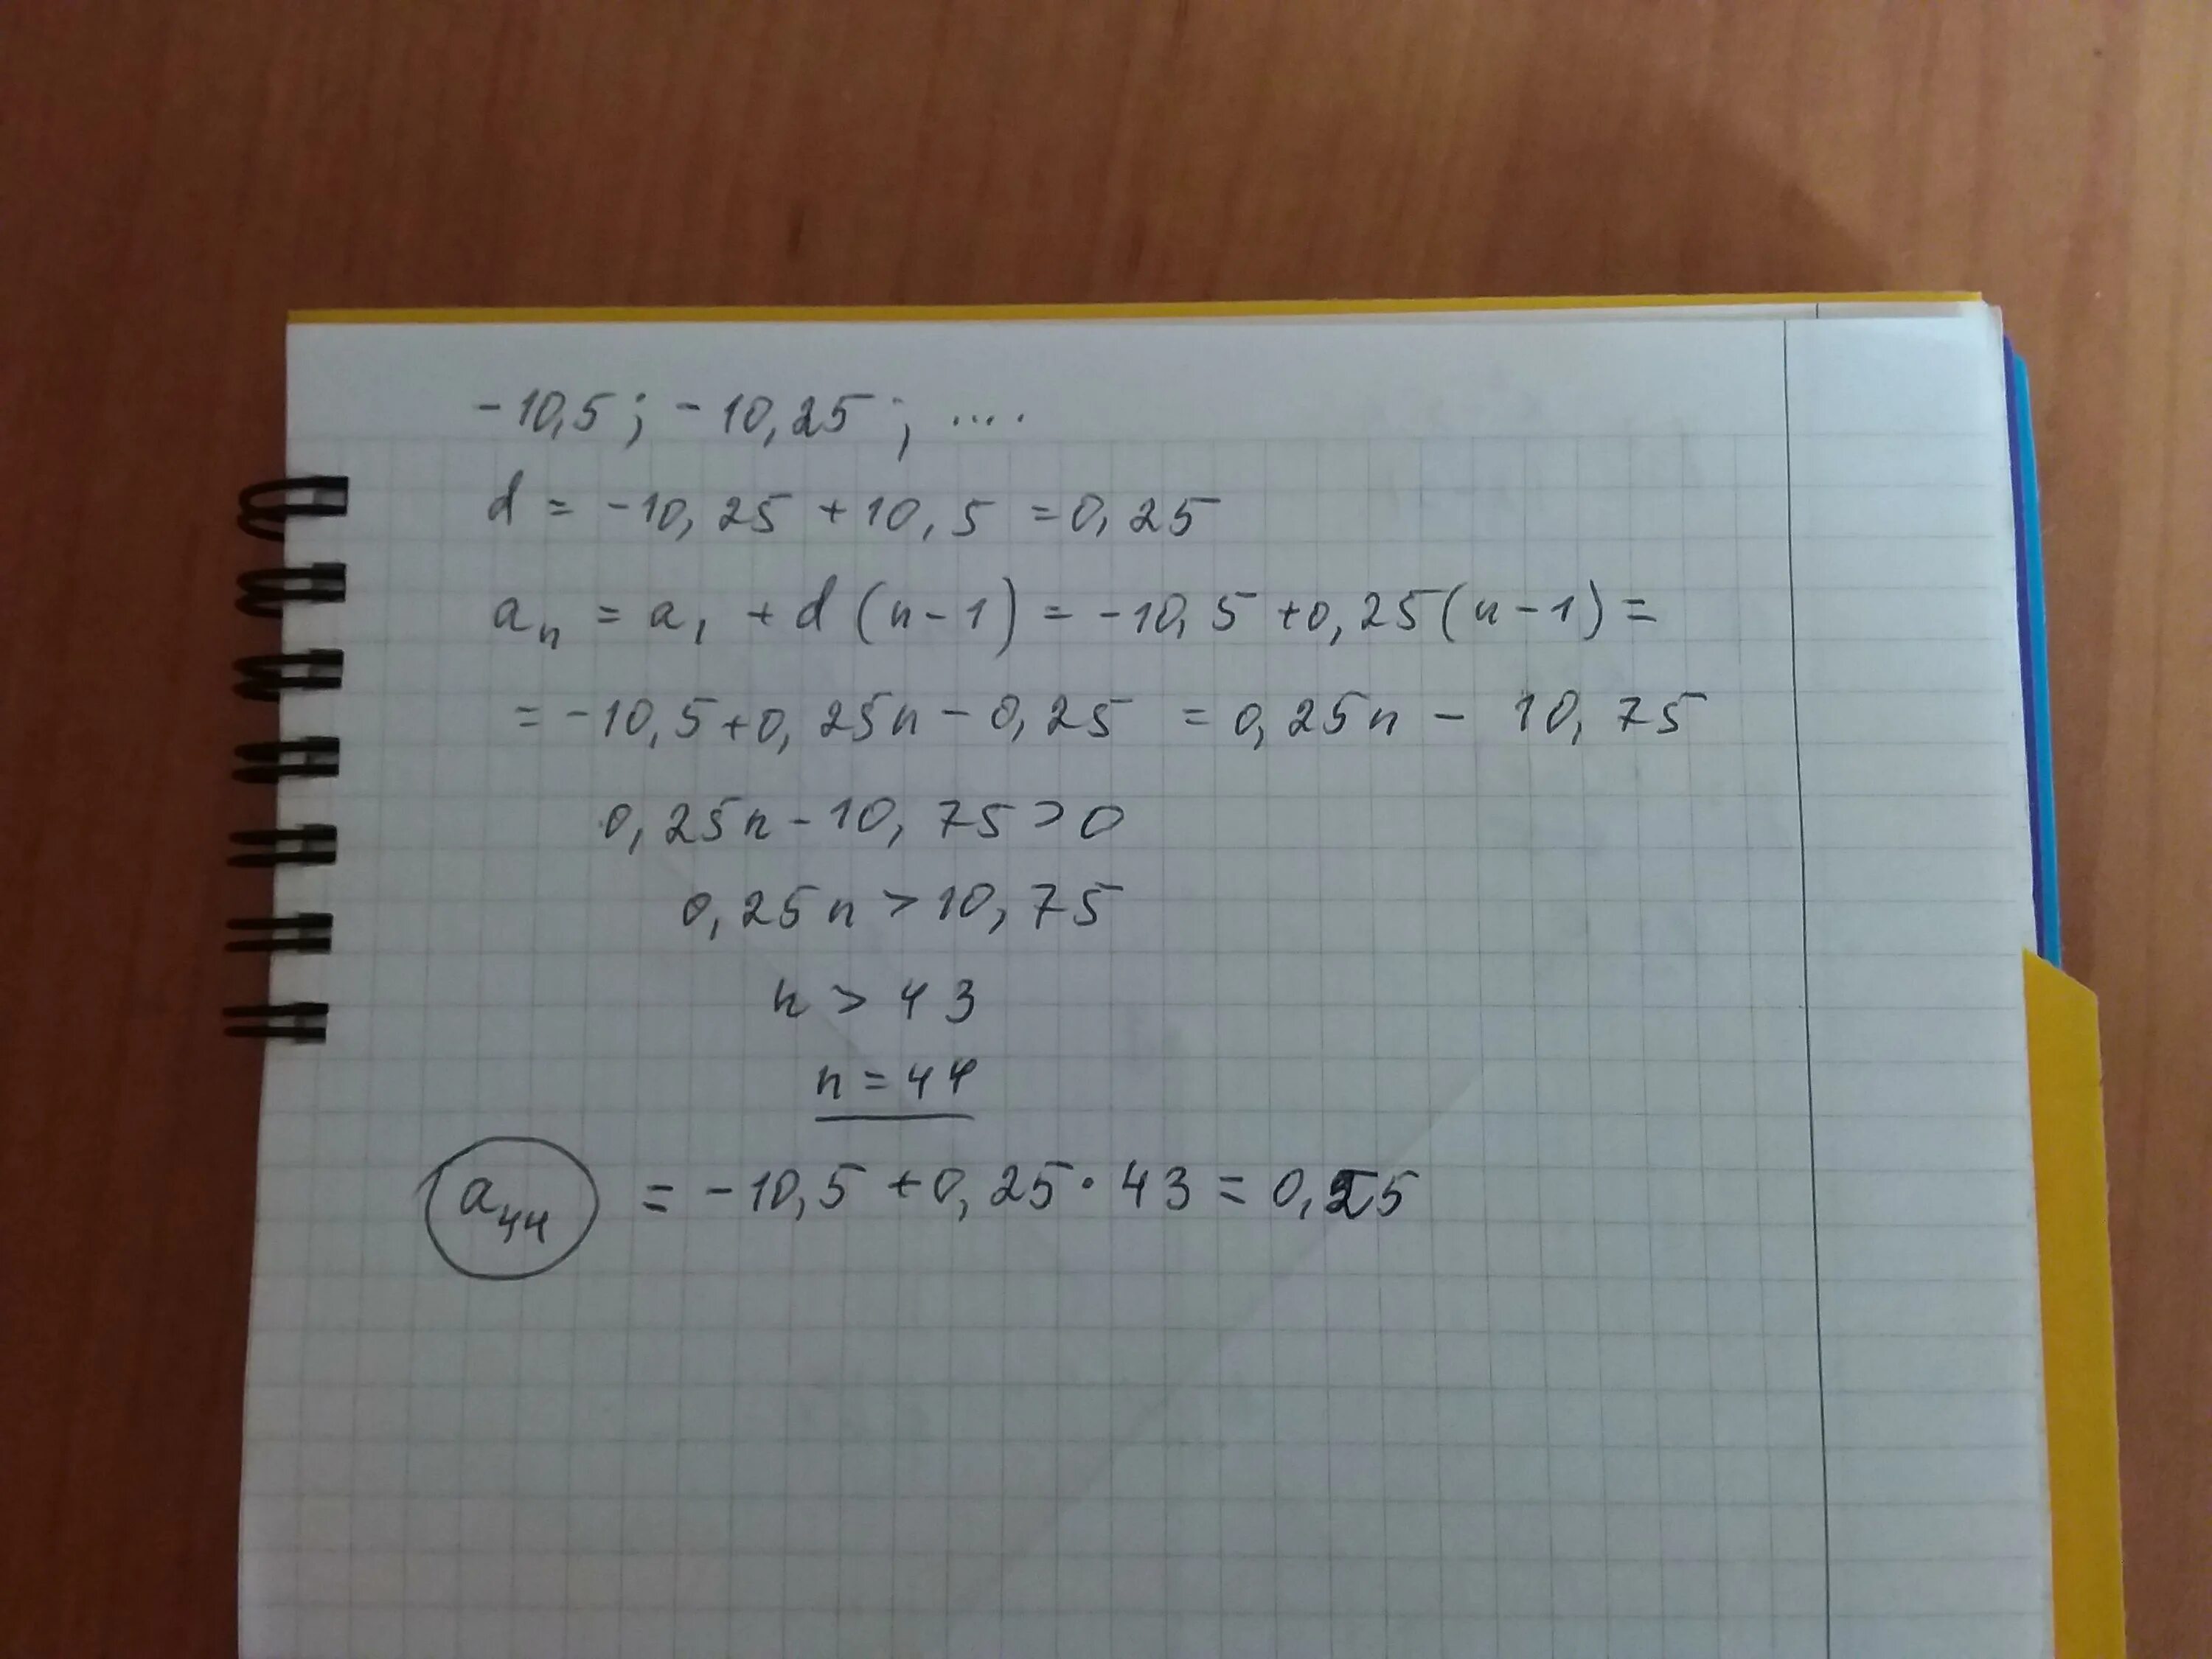 -10,5; -10,25; ....
d = -10,25 + 10,5 = 0,25
aₙ = a₁ + d(n-1) = -10,5 + 0,25(n-1) =
= -10,5 + 0,25n - 0,25 = 0,25n - 10,75
0,25n - 10,75 > 0
0,25n > 10,75
n > 43
n = 44
a₄₄ = -10,5 + 0,25 · 43 = 0,25